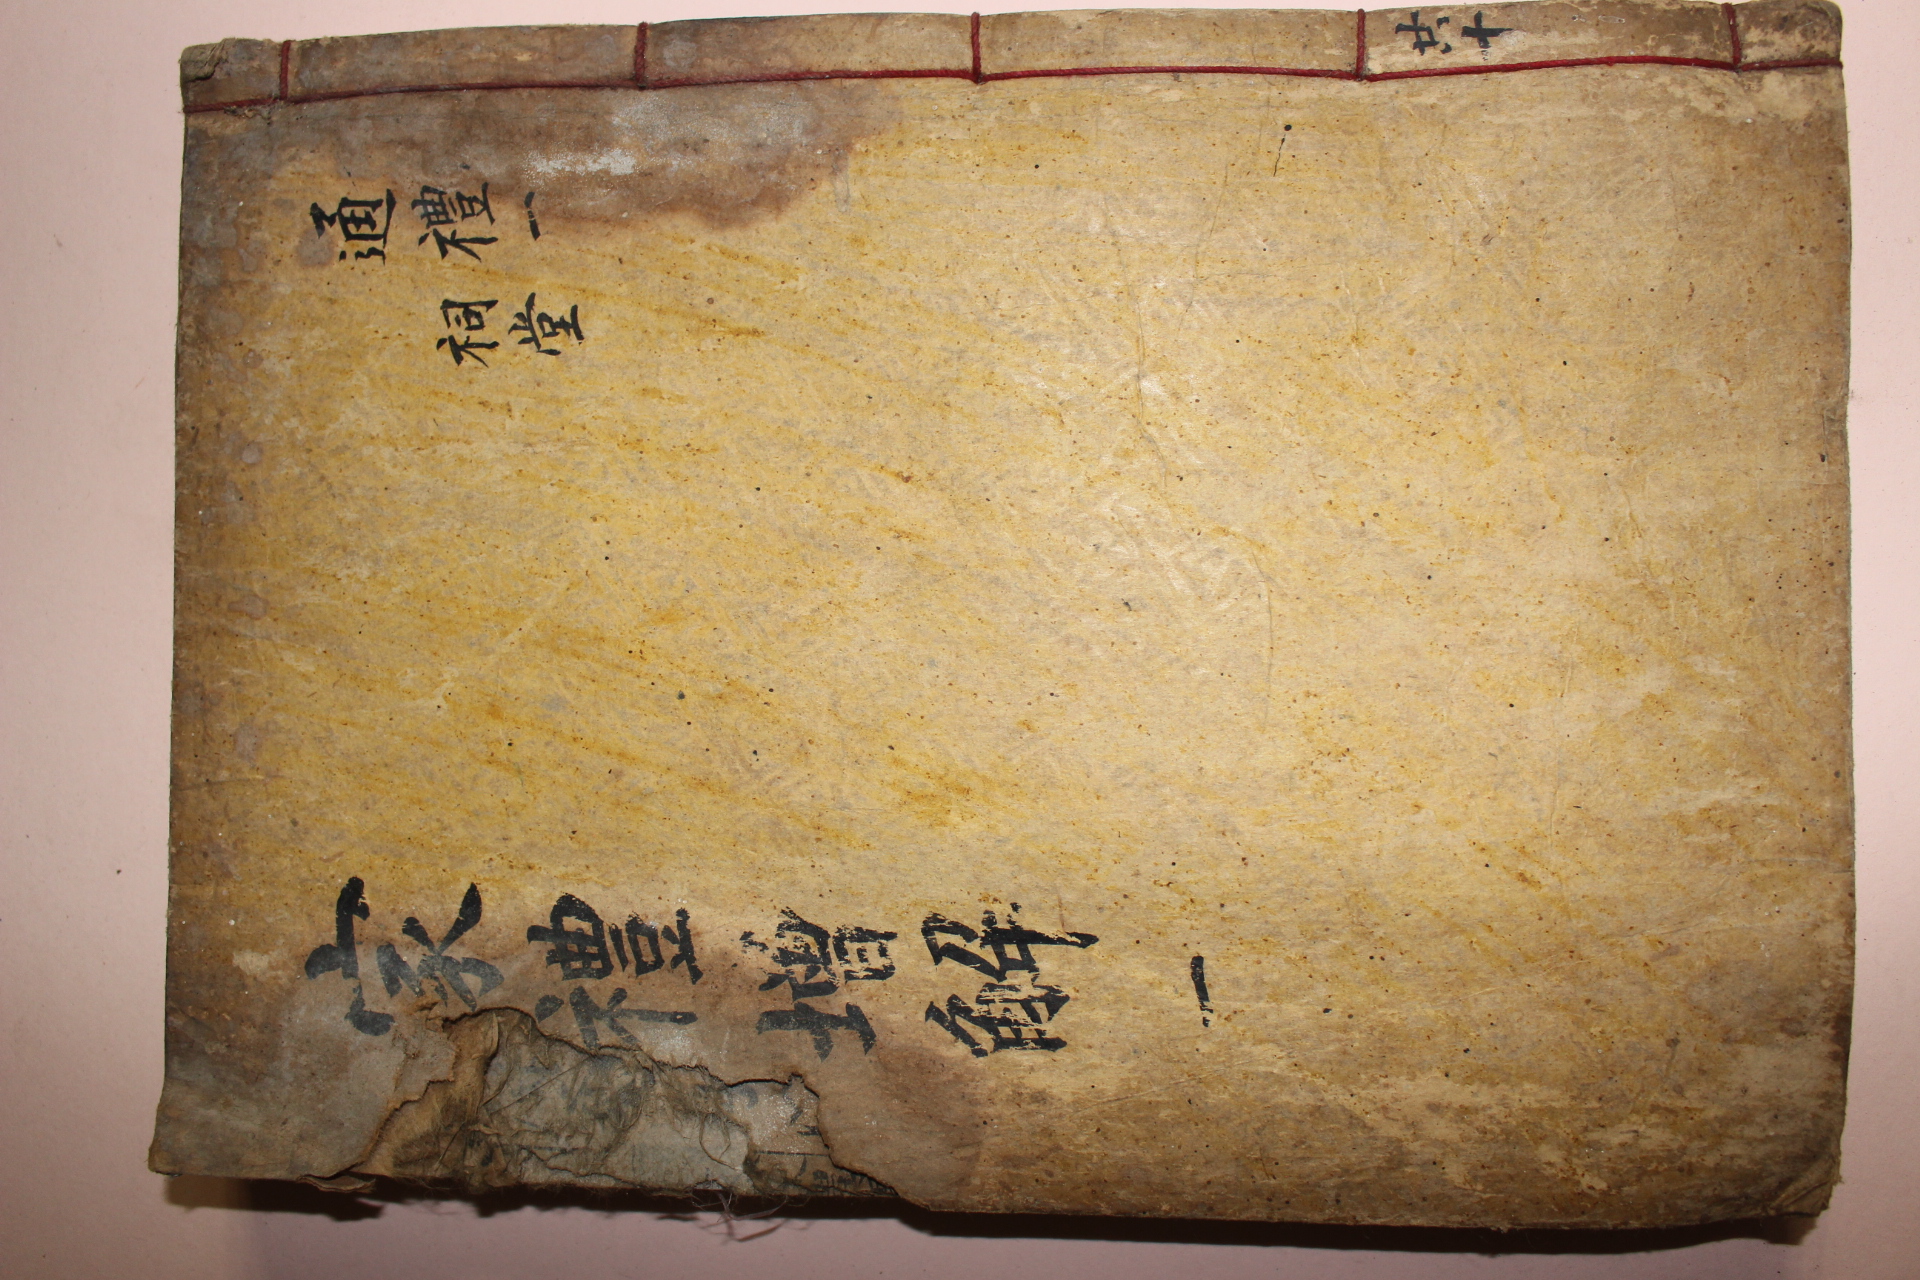 共十
通禮一
祠堂
家禮增解 一